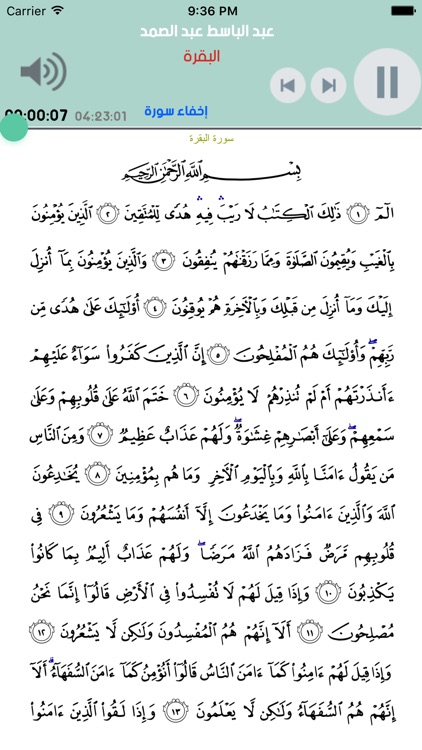 Carrier 9:36 PM
عبد الباسط عبد الصمد
البقرة
00:00:07 04:23:01 إخفاء سورة
سورة البقرة
بِسْمِ ٱللَّهِ ٱلرَّحْمَٰنِ ٱلرَّحِيمِ
الٓمٓ ١ ذَٰلِكَ ٱلْكِتَٰبُ لَا رَيْبَ ۛ فِيهِ ۛ هُدًى لِّلْمُتَّقِينَ ٢ ٱلَّذِينَ يُؤْمِنُونَ
بِٱلْغَيْبِ وَيُقِيمُونَ ٱلصَّلَوٰةَ وَمِمَّا رَزَقْنَٰهُمْ يُنفِقُونَ ٣ وَٱلَّذِينَ يُؤْمِنُونَ بِمَآ أُنزِلَ
إِلَيْكَ وَمَآ أُنزِلَ مِن قَبْلِكَ وَبِٱلْأَخِرَةِ هُمْ يُوقِنُونَ ٤ أُو۟لَٰٓئِكَ عَلَىٰ هُدًى مِّن
رَّبِّهِمْ ۖ وَأُو۟لَٰٓئِكَ هُمُ ٱلْمُفْلِحُونَ ٥ إِنَّ ٱلَّذِينَ كَفَرُوا۟ سَوَآءٌ عَلَيْهِمْ
ءَأَنذَرْتَهُمْ أَمْ لَمْ تُنذِرْهُمْ لَا يُؤْمِنُونَ ٦ خَتَمَ ٱللَّهُ عَلَىٰ قُلُوبِهِمْ وَعَلَىٰ
سَمْعِهِمْ ۖ وَعَلَىٰٓ أَبْصَٰرِهِمْ غِشَٰوَةٌ ۖ وَلَهُمْ عَذَابٌ عَظِيمٌ ٧ وَمِنَ ٱلنَّاسِ
مَن يَقُولُ ءَامَنَّا بِٱللَّهِ وَبِٱلْيَوْمِ ٱلْأَخِرِ وَمَا هُم بِمُؤْمِنِينَ ٨ يُخَٰدِعُونَ
ٱللَّهَ وَٱلَّذِينَ ءَامَنُوا۟ وَمَا يَخْدَعُونَ إِلَّآ أَنفُسَهُمْ وَمَا يَشْعُرُونَ ٩ فِى
قُلُوبِهِم مَّرَضٌ فَزَادَهُمُ ٱللَّهُ مَرَضًا ۖ وَلَهُمْ عَذَابٌ أَلِيمٌۢ بِمَا كَانُوا۟
يَكْذِبُونَ ١٠ وَإِذَا قِيلَ لَهُمْ لَا تُفْسِدُوا۟ فِى ٱلْأَرْضِ قَالُوٓا۟ إِنَّمَا نَحْنُ
مُصْلِحُونَ ١١ أَلَآ إِنَّهُمْ هُمُ ٱلْمُفْسِدُونَ وَلَٰكِن لَّا يَشْعُرُونَ ١٢
وَإِذَا قِيلَ لَهُمْ ءَامِنُوا۟ كَمَآ ءَامَنَ ٱلنَّاسُ قَالُوٓا۟ أَنُؤْمِنُ كَمَآ ءَامَنَ ٱلسُّفَهَآءُ ۗ أَلَآ
إِنَّهُمْ هُمُ ٱلسُّفَهَآءُ وَلَٰكِن لَّا يَعْلَمُونَ ١٣ وَإِذَا لَقُوا۟ ٱلَّذِينَ ءَامَنُوا۟